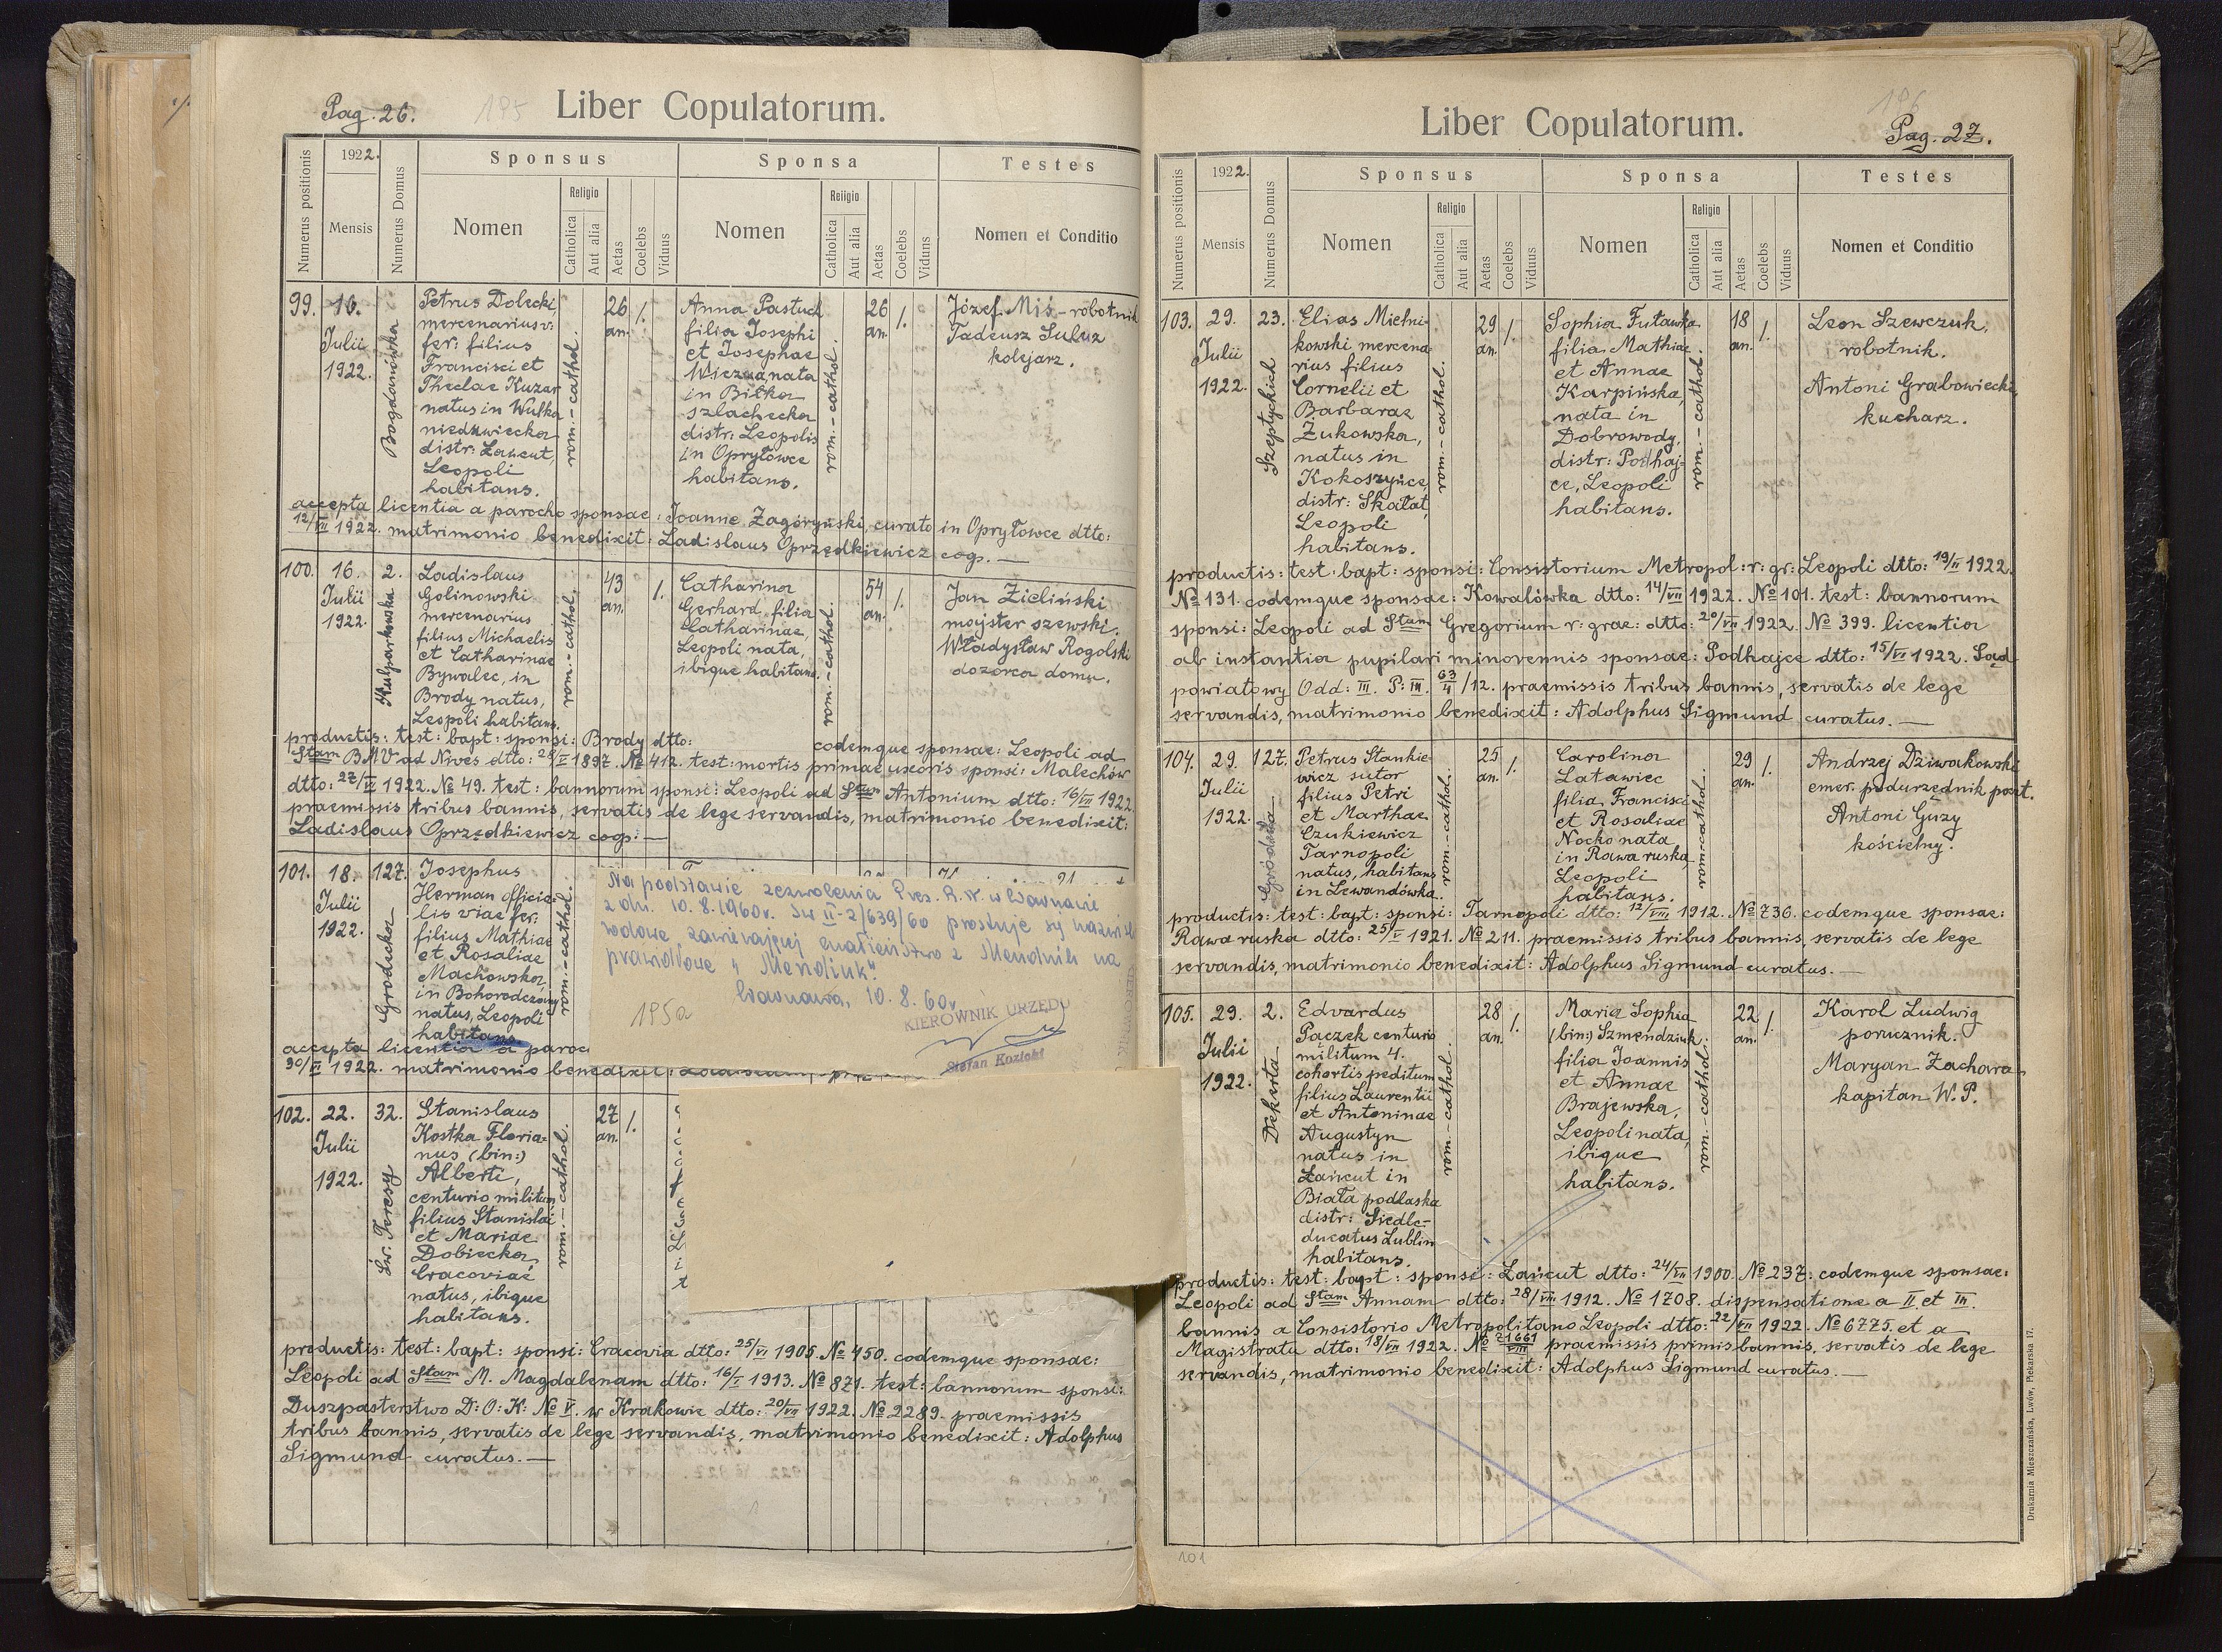 Pag. 26.
195
Liber Copulatorum.
Numerus positionis
1922.
Mensis
Numerus Domus
Sponsus
Nomen
Religio
Catholica
Aut alia
Aetas
Coelebs
Viduus
Sponsa
Nomen
Religio
Catholica
Aut alia
Aetas
Coelebs
Viduns
Testes
Nomen et Conditio
99.
16.
Julii
1922.
Bogdanówka
Petrus Dolecki
mercenarius vi:
fer: filius
Francisci et
Theclae Kuzar
natus in Wulka
niedzwiecka
distr: Łancut,
Leopoli
habitans.
rom.-cathol.
26
an.
1.
Anna Pastuch
filia Josephi
et Josephae
nata
in Biłka
szlachecka
distr: Leopolis
in Opryłowce
habitans.
rom.-cathol.
26
an.
1.
Józef Miś - robotnik
Tadeusz
kolejarz.
accepta licentia a parocho sponsae: Joanne Zagórzyński, curato in Opryłowce dtto:
12/VII 1922. matrimonio benedixit: Ladislaus Oprzędkiewicz coop. —
100.
16.
Julii
1922.
2.
Kulparkowska
Ladislaus
Golinowski
mercenarius
filius Michaelis
et Catharinae
Bywalec, in
Brody natus,
Leopoli habitans.
rom.-cathol.
43
an.
1.
Catharina
Gerhard filia
Catharinae,
Leopoli nata,
ibique habitans.
rom.-cathol.
54
an.
1.
Jan Zieliński
majster szewski.
Władysław Rogolski
dozorca domu.
productis: test: bapt: sponsi: Brody dtto: codemque sponsae: Leopoli ad
Stam BMV ad Nives dtto: 1897. № 412. test: mortis primae uxoris sponsi: Malechów
dtto: 27/VI 1922. № 49. test: bannorum sponsi: Leopoli ad Stum Antonium dtto: 16/VII 1922.
praemissis tribus bannis, servatis de lege servandis, matrimonio benedixit:
Ladislaus Oprzędkiewicz coop: —
101.
18.
Julii
1922.
127.
Grodecka
Josephus
Herman officia-
lis viae fer:
filius Mathiae
et Rosaliae
Machowska,
in Bohorodczany
natus, Leopoli
habitans.
rom.-cathol.
accepta licentia a paroc
30/VI 1922. matrimonio benedixit:
Na podstawie zezwolenia Prez. R. N. w Warszawie
z dn. 10.8.1960r. Sw II-2/639/60 prostuje się nazwisko
rodowe zawierającej małżeństwo z Mendnik na
prawidłowe "Mendiuk".
Warszawa, 10.8.60r.
195a
KIEROWNIK URZĘDU
Stefan Kozicki
102.
22.
Julii
1922.
32.
Św. Teresy
Stanislaus
Kostka Floria-
nus (bin:)
Alberti,
centurio militum
filius Stanislai
et Mariae
Dobiecka,
Cracoviae
natus, ibique
habitans.
rom.-cathol.
27
an.
1.
productis: test: bapt: sponsi: Cracovia dtto: 25/VI 1905. № 450. codemque sponsae:
Leopoli ad Stam M. Magdalenam dtto: 16/I 1913. № 871. test: bannorum sponsi:
Duszpasterstwo D: O: K: № V. w Krakowie dtto: 20/VII 1922. № 2289. praemissis
tribus bannis, servatis de lege servandis, matrimonio benedixit: Adolphus
Sigmund curatus. —
196
Liber Copulatorum.
Pag. 27.
Numerus positionis
1922.
Mensis
Numerus Domus
Sponsus
Nomen
Religio
Catholica
Aut alia
Aetas
Coelebs
Viduus
Sponsa
Nomen
Religio
Catholica
Aut alia
Aetas
Coelebs
Viduus
Testes
Nomen et Conditio
103.
29.
Julii
1922.
23.
Szeptyckich
Elias Mielni-
kowski mercena-
rius filius
Cornelii et
Barbarae
Żukowska,
natus in
Kokoszyńce,
distr: Skałat,
Leopoli
habitans.
rom.-cathol.
29
an.
1.
Sophia Futawka
filia Mathiae
et Annae
Karpińska,
nata in
Dobrowody,
distr: Podhaj-
ce, Leopoli
habitans.
rom.-cathol.
18
an.
1.
Leon Szewczuk,
robotnik.
Antoni Grabowiecki,
kucharz.
productis: test: bapt: sponsi: Consistorium Metropol: r: gr: Leopoli dtto: 19/II 1922.
№ 131. codemque sponsae: Kowalówka dtto: 14/VII 1922. № 101. test: bannorum
sponsi: Leopoli ad Stum Gregorium r: grae: dtto: 20/VII 1922. № 399. licentia
ab instantia pupilari minorennis sponsae: Podhajce dtto: 15/VI 1922. Sąd
powiatowy Odd: III. P: III. 63/4/12. praemissis tribus bannis, servatis de lege
servandis, matrimonio benedixit: Adolphus Sigmund curatus. —
104.
29.
Julii
1922.
127.
Gródecka
Petrus Stankie-
wicz sutor
filius Petri
et Marthae
Czukiewicz
Tarnopoli
natus, habitans
in Lewandówka.
rom.-cathol.
25
an.
1.
Carolina
Latawiec
filia Francisci
et Rosaliae
Nocko nata
in Rawa ruska,
Leopoli
habitans.
rom-cathol.
29
an.
1.
Andrzej Dziwakowski
emer. podurzędnik poczt.
Antoni Guzy
kościelny.
productis: test: bapt: sponsi: Tarnopoli dtto: 12/VIII 1912. № 736. codemque sponsae:
Rawa ruska dtto: 25/V 1921. № 211. praemissis tribus bannis, servatis de lege
servandis, matrimonio benedixit: Adolphus Sigmund curatus. —
105.
29.
Julii
1922.
2.
Dekerta
Edvardus
Pączek centurio
militum 4.
cohortis peditum
filius Laurentii
et Antoninae
Augustyn
natus in
Łańcut in
Biała podlaska
distr: Siedle-
ducatus Lublin
habitans.
rom.-cathol.
28
an.
1.
Maria Sophia
(bin:) Szmendziuk
filia Joannis
et Annae
Brajewska,
Leopoli nata,
ibique
habitans.
rom.-cathol.
22
an.
1.
Karol Ludwig
porucznik.
Maryan Zachara
kapitan W. P.
productis: test: bapt: sponsi: Łańcut dtto: 24/VII 1900. № 237. codemque sponsae:
Leopoli ad Stam Annam dtto: 28/VIII 1912. № 1708. dispensatione a II. et III.
bannis a Consistorio Metropolitano Leopoli dtto: 22/VII 1922. № 6775. et a
Magistratu dtto: 18/VII 1922. № 71661/VIII praemissis primis bannis, servatis de lege
servandis, matrimonio benedixit: Adolphus Sigmund curatus. —
101
Drukarnia Mieszczańska, Lwów, Piekarska 17.